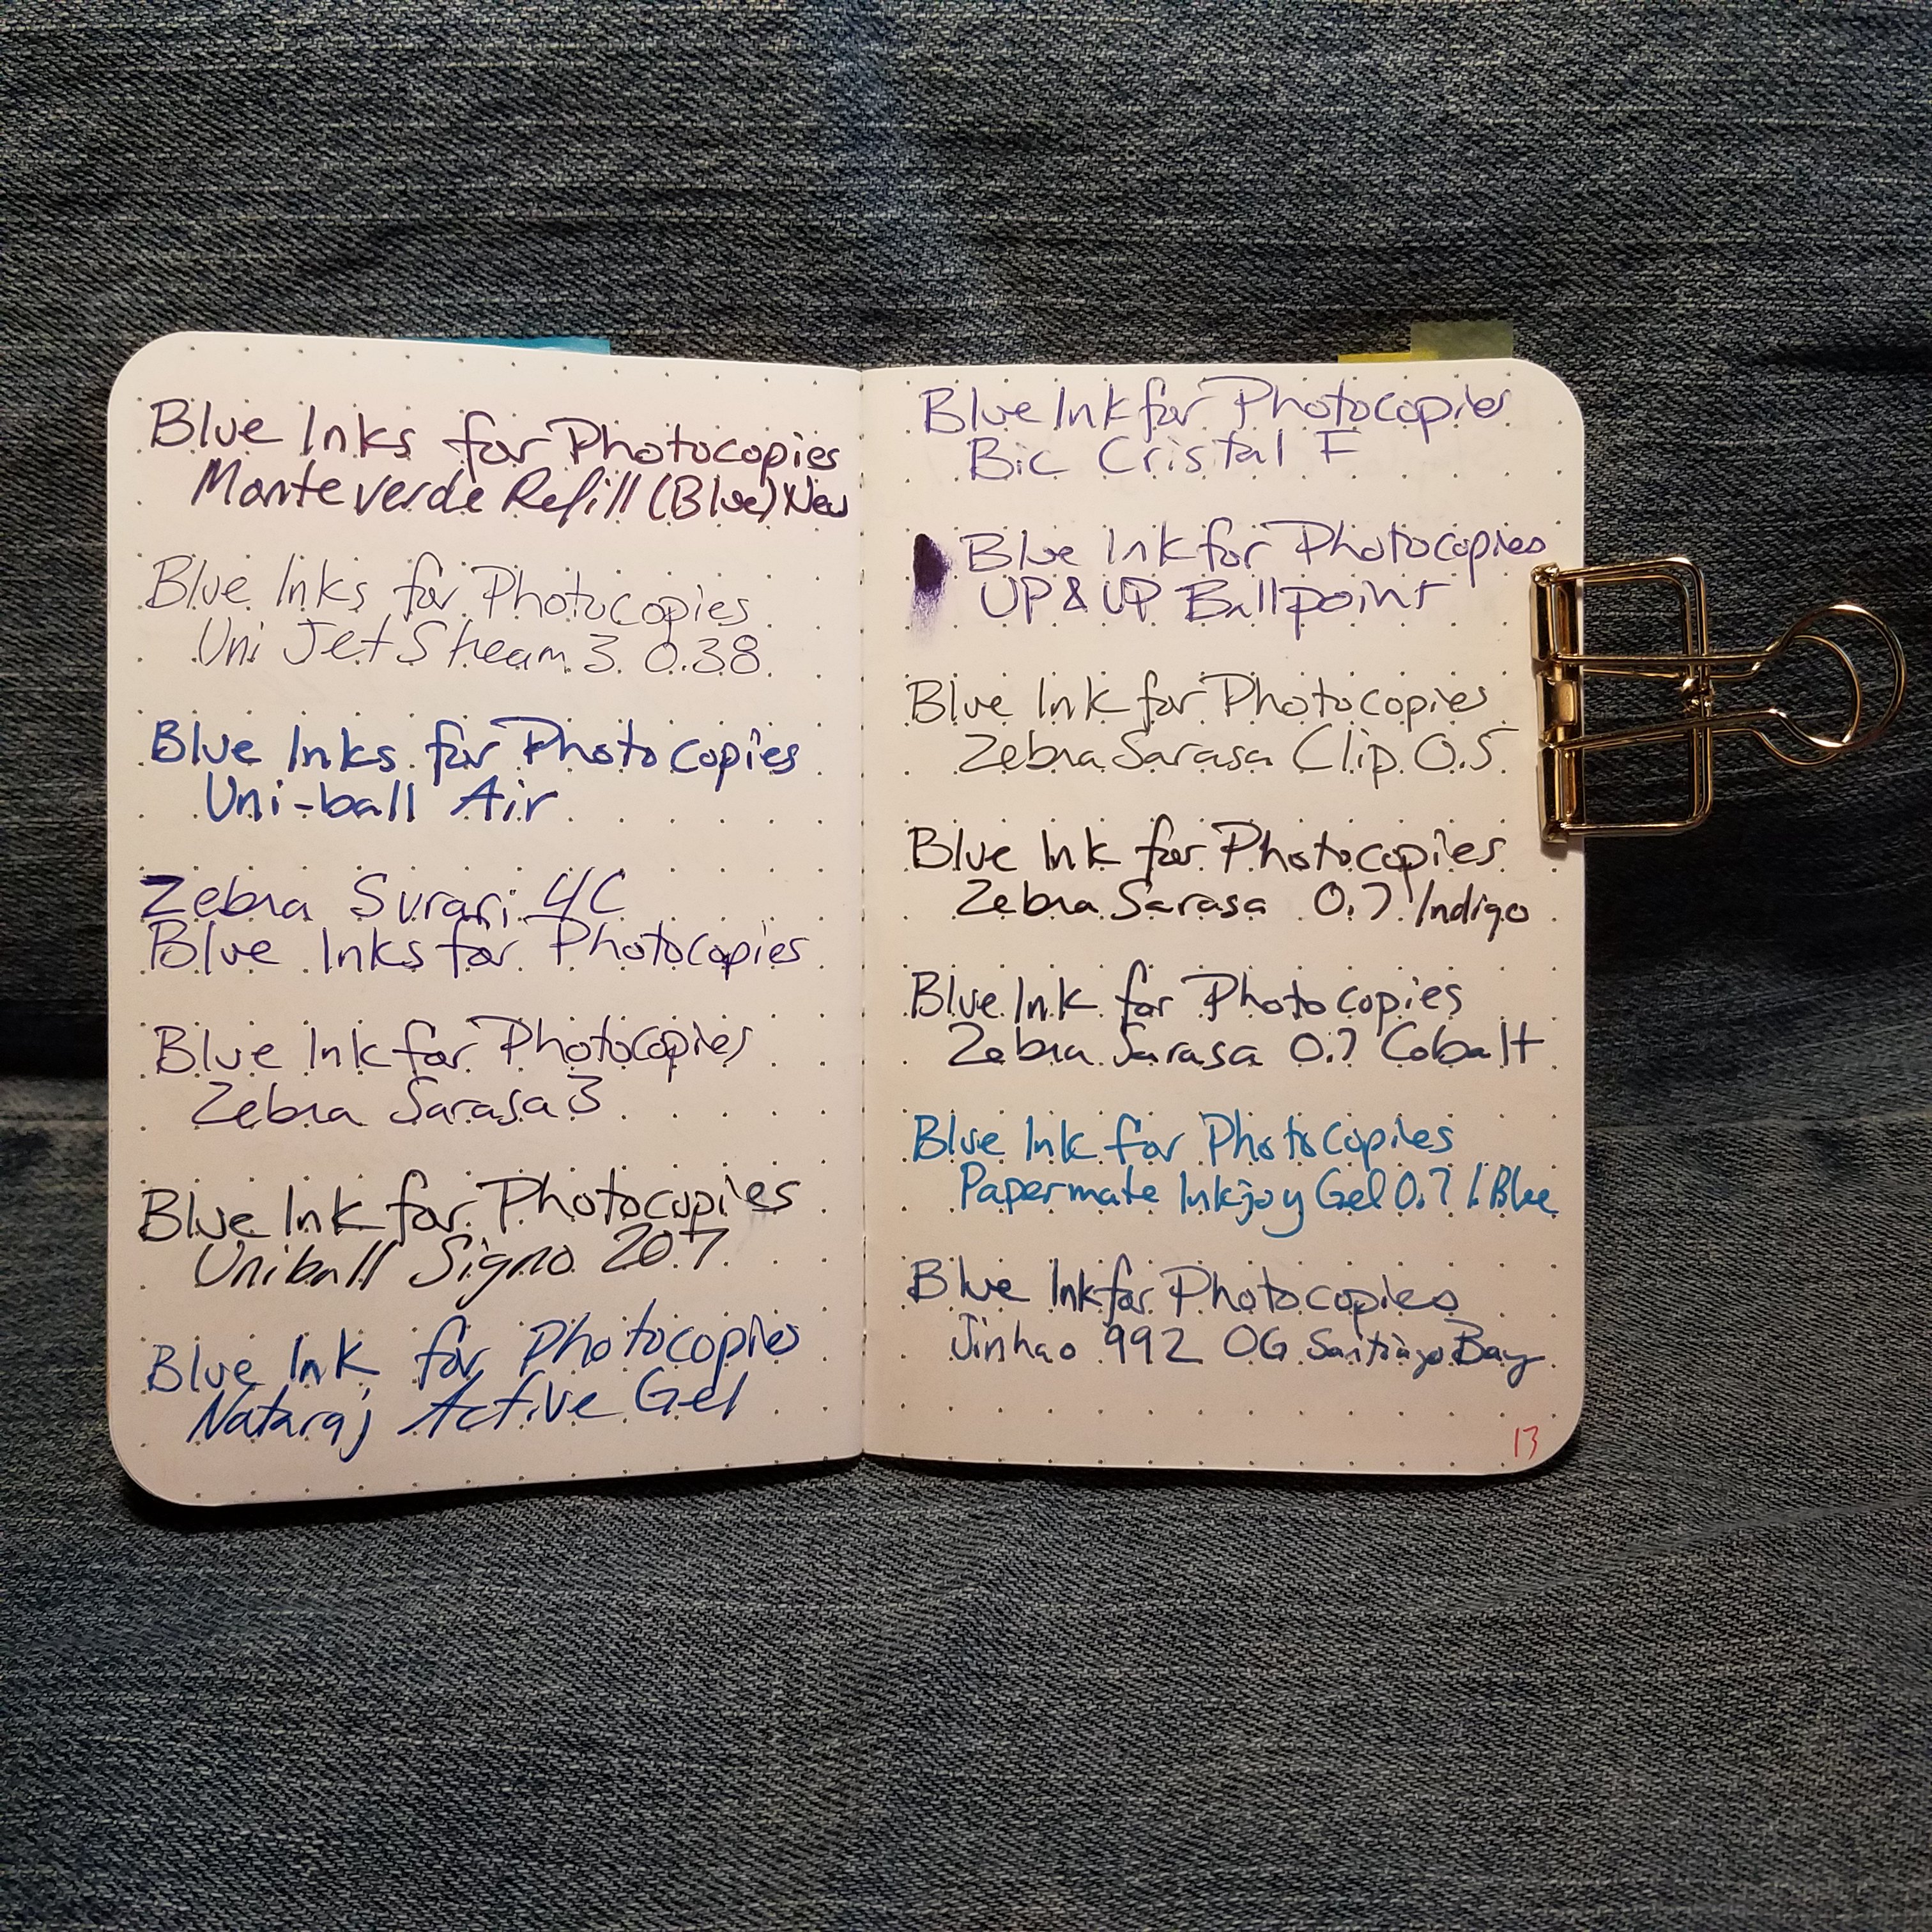 Blue Inks for Photocopies
Monteverde Refill (Blue) New
Blue Inks for Photocopies
Uni JetStream 3 0.38
Blue Inks for Photocopies
Uni-ball Air
Zebra Surari 4C
Blue Inks for Photocopies
Blue Ink for Photocopies
Zebra Sarasa 3
Blue Ink for Photocopies
Uniball Signo 207
Blue Ink for Photocopies
Nataraj Active Gel
Blue Ink for Photocopies
Bic Cristal F
Blue Ink for Photocopies
UP & UP Ballpoint
Blue Ink for Photocopies
Zebra Sarasa Clip 0.5
Blue Ink for Photocopies
Zebra Sarasa 0.7 Indigo
Blue Ink for Photocopies
Zebra Sarasa 0.7 Cobalt
Blue Ink for Photocopies
Papermate Inkjoy Gel 0.7 l. Blue
Blue Ink for Photocopies
Jinhao 992 OG Santiago Bay
13